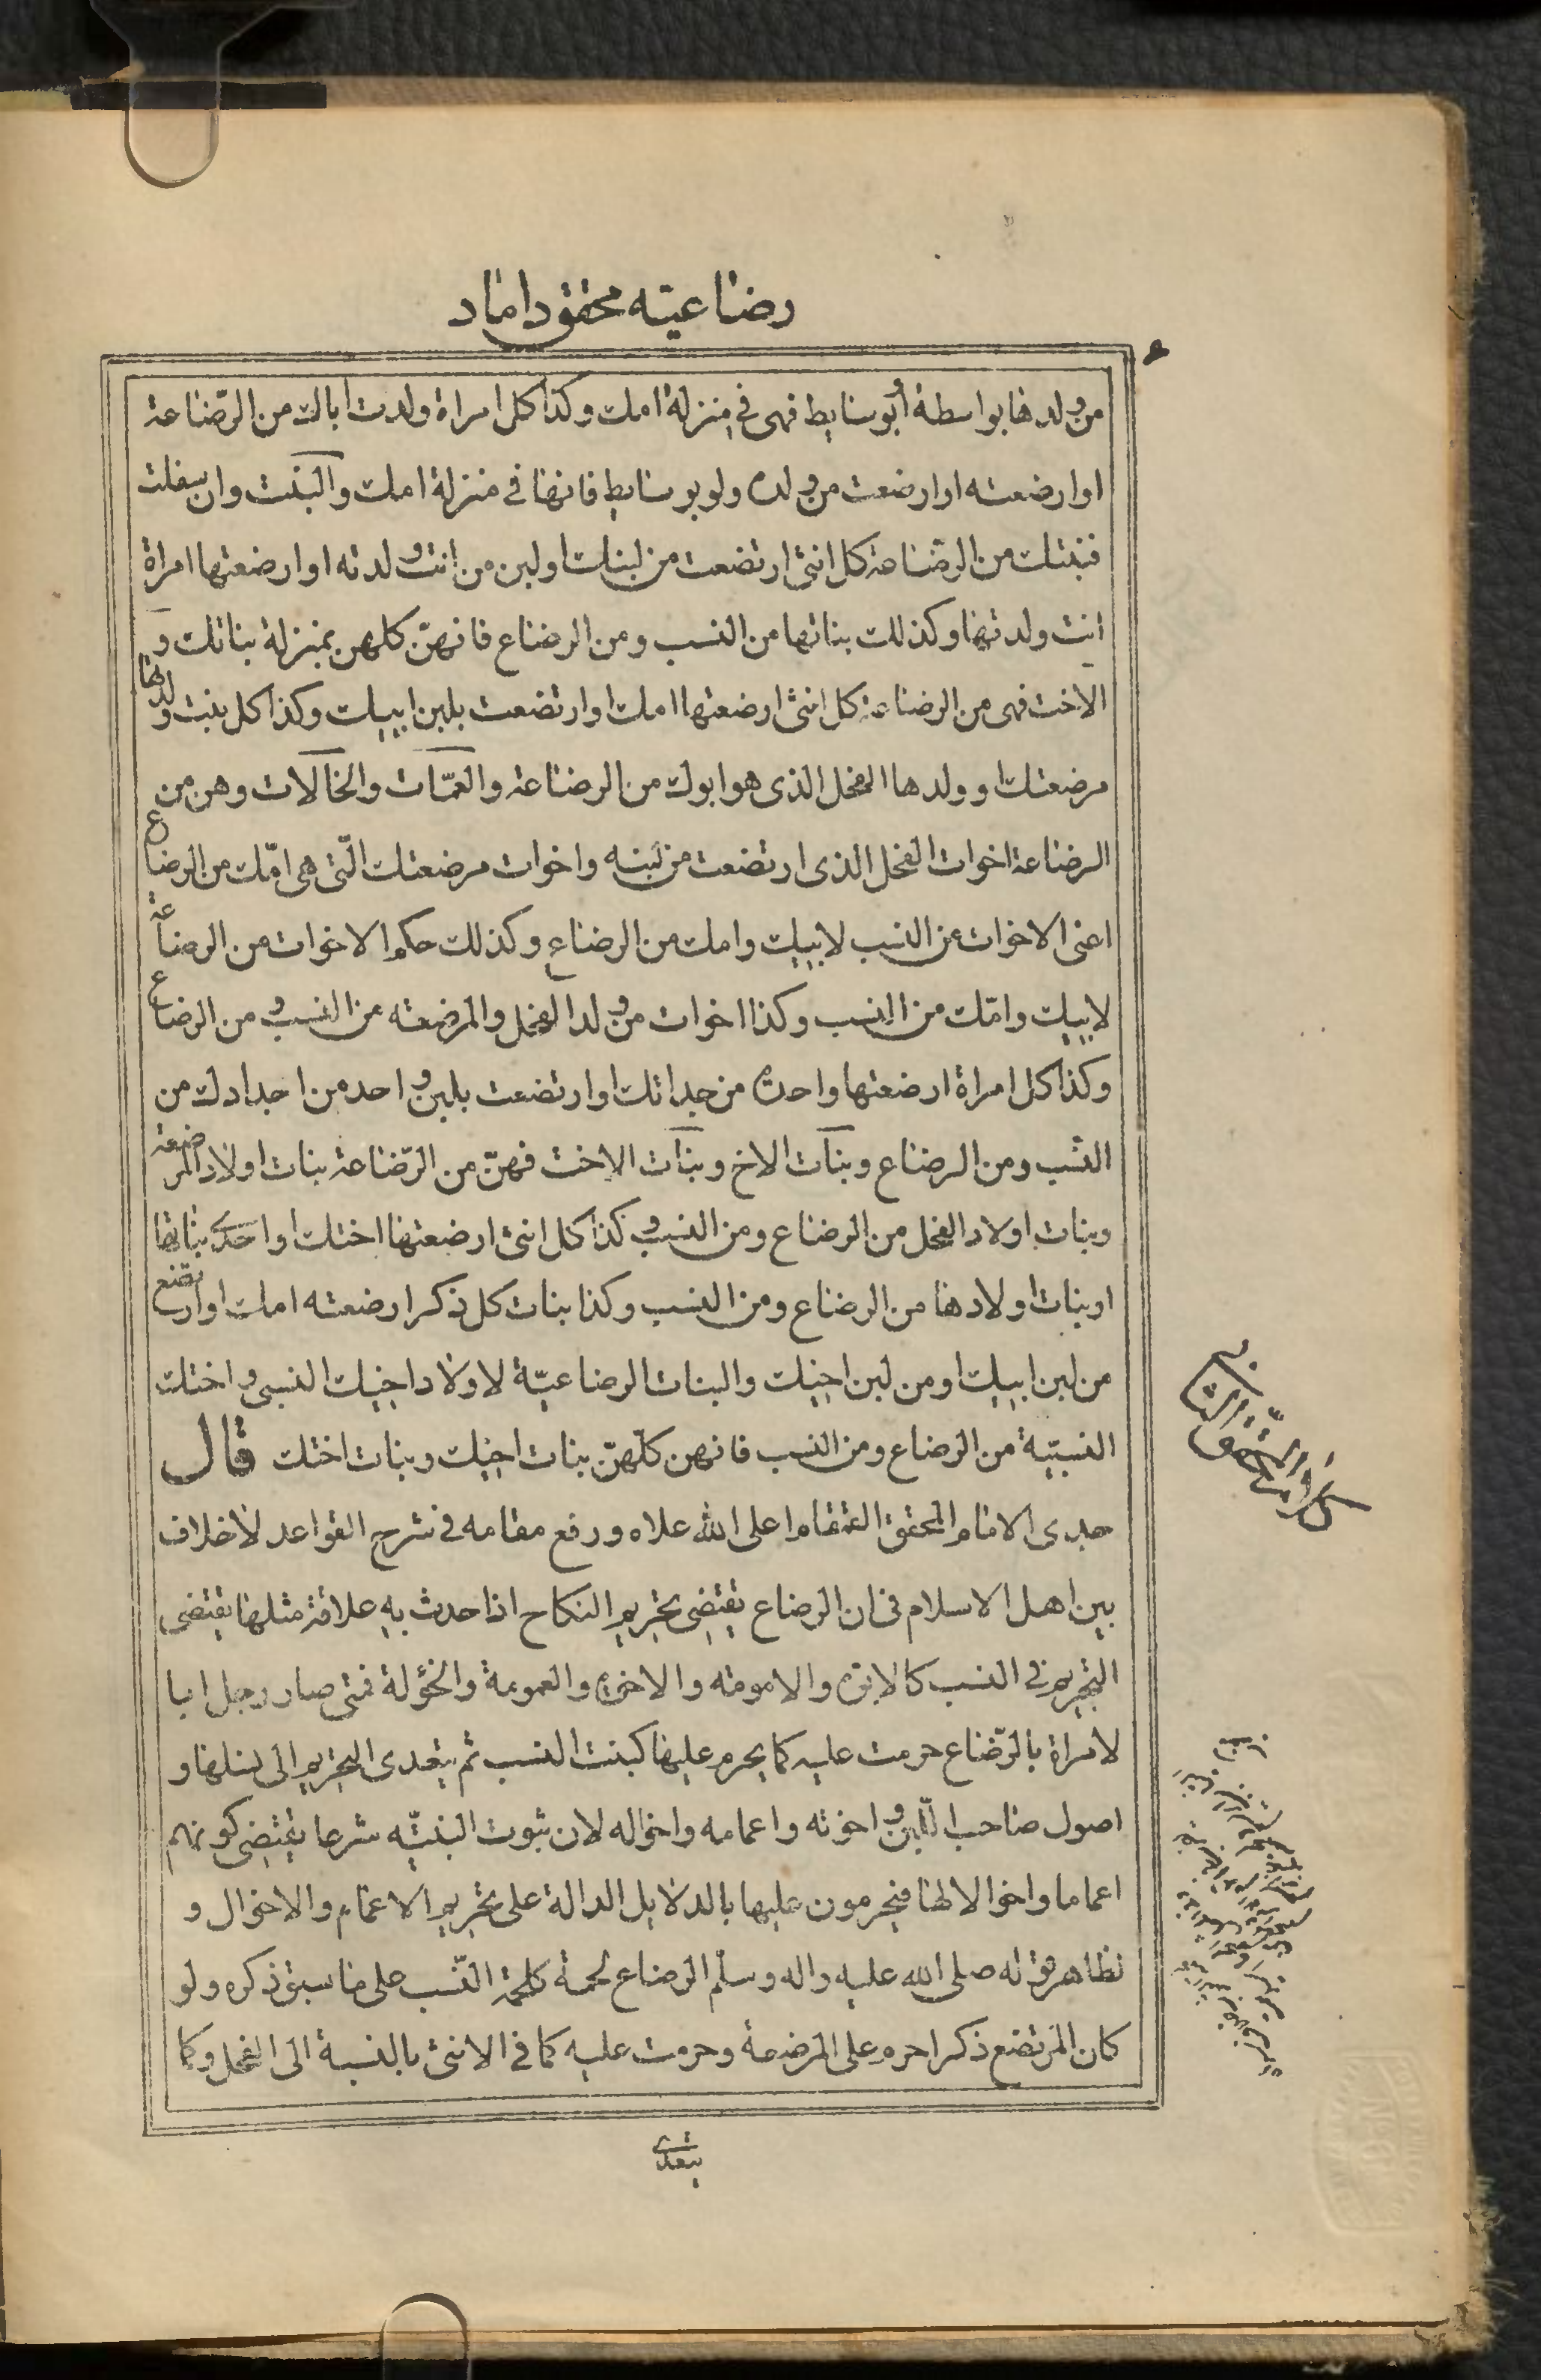 رضاعيته محقق داماد
من ولدها بواسطة أو بوسايط فهى فى منزلة امك وكذا كل امراة ولدت أباك من الرّضاعة
او ارضعته او ارضعت من ولده ولو بوسايط فانها فى منزلة امك والبنت وان سفلت
فبنتك من الرضاعة كل انثى ارتضعت من لبنك او لبن من انت ولدته او ارضعتها امراة
انت ولدتها وكذلك بناتها من النسب ومن الرضاع فانهنّ كلهن بمنزلة بناتك و
الاخت فهى من الرضاعة كل انثى ارضعتها امك او ارتضعت بلبن ابيك وكذا كل بنت ولدتها
مرضعتك او ولدها الفحل الذى هو ابوك من الرضاعة والعمّات والخالات وهن من
الرضاعة اخوات الفحل الذى ارتضعت من لبنه واخوات مرضعتك الّتى هى امّك من الرضاع
اعنى الاخوات من النسب لابيك وامك من الرضاع وكذلك حكم الاخوات من الرضاعة
لابيك وامّك من النسب وكذا اخوات من ولد الفحل والمرضعه من النسب و من الرضاع
وكذا كل امراة ارضعتها واحدة من جداتك او ارتضعت بلبن واحد من اجدادك من
النسب ومن الرضاع وبنات الاخ وبنات الاخت فهنّ من الرّضاعة بنات اولاد المرضعة
وبنات اولاد الفحل من الرضاع ومن النسب و كذا كل انثى ارضعتها اختك او احدى بناتها
او بنات اولادها من الرضاع ومن النسب وكذا بنات كل ذكر ارضعته امك او ارتضع
من لبن ابيك او من لبن اخيك والبنات الرضاعيّة لاولاد اخيك النسبى و اختك
النسبيّة من الرضاع ومن النسب فانهن كلّهنّ بنات اخيك وبنات اختك قال
جدى الامام المحقق القمقام اعلى الله علاه ورفع مقامه فى شرح القواعد لاخلاف
بين اهل الاسلام فى ان الرضاع يقتضى تحريم النكاح اذا حدث به علاقة مثلها يقتضى
التحريم فى النسب كالابوة والامومة والاخوة والعمومة والخؤلة فمتى صار رجل ابا
لامراة بالرّضاع حرمت عليه كما يحرم عليها كبنت النسب ثم يتعدى التحريم الى نسلها و
اصول صاحب اللّبن و اخوته واعمامه واخواله لان ثبوت البنتيّه شرعا يقتضى كونهم
اعماما واخوالا لها فيحرمون عليها بالدلايل الدالة على تحريم الاعمام والاخوال و
نظاهر قوله صلى الله عليه واله وسلّم الرضاع لحمة كلحمة النّسب على ما سبق ذكره ولو
كان المرتضع ذكرا حرم على المرضعة وحرمت عليه كما فى الانثى بالنسبة الى الفحل وكما
يتعدى